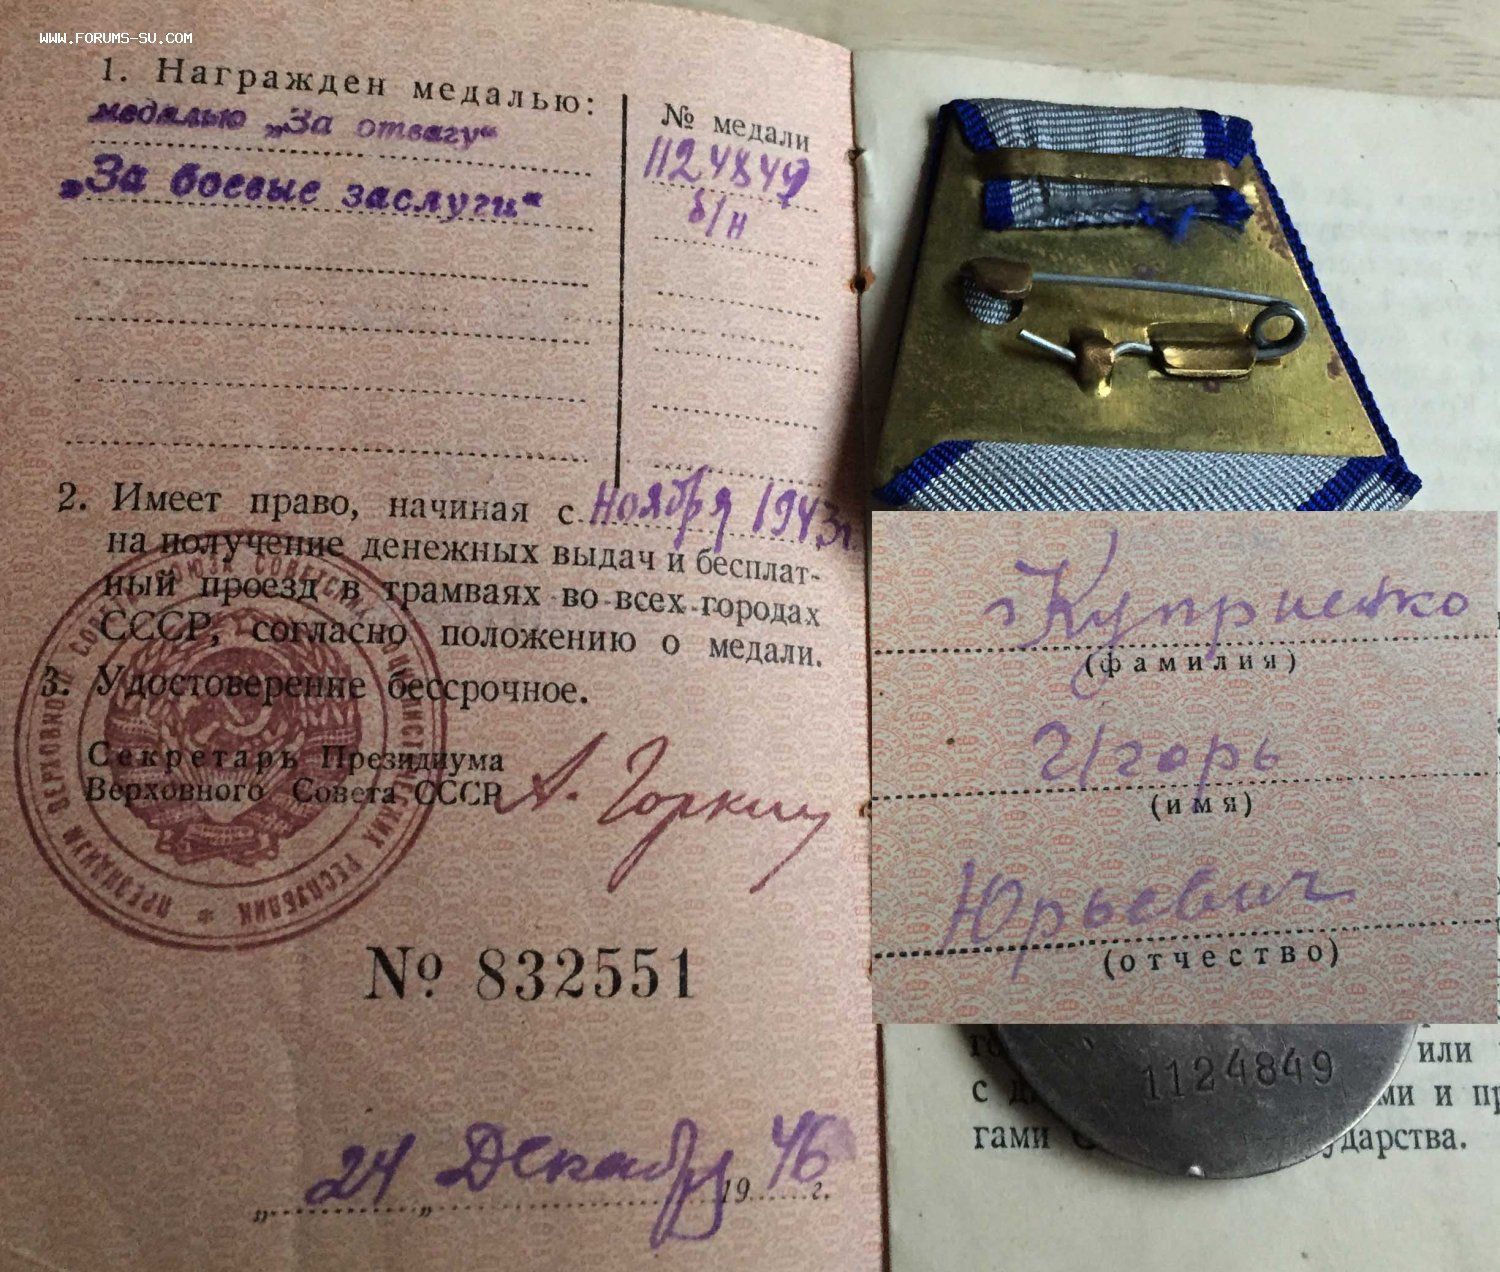 WWW.FORUMS-SU.COM
1. Награжден медалью:
№ медали
медалью „За отвагу“
1124849
„За боевые заслуги“
б/н
2. Имеет право, начиная с Ноября 1943г.
на получение денежных выдач и бесплат-
ный проезд в трамваях во всех городах
СССР, согласно положению о медали.
3. Удостоверение бессрочное.
Секретарь Президиума
Верховного Совета СССР
А. Горкин
№ 832551
„24„ Декабря 1946 г.
Куприенко
(фамилия)
Игорь
(имя)
Юрьевич
(отчество)
1124849
или
с
ми и пр
гами
ударства.